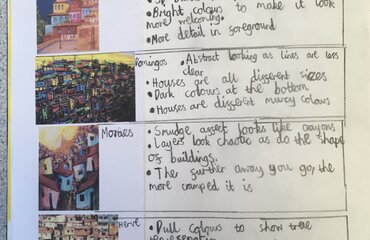 • Bright colours to make it look
more welcoming.
• More detail in foreground
Domingos
• Abstract looking as lines are less
clear
• Houses are all different sizes
• Dark colours at the bottom
• Houses are different murcy colours
Moraes
• Smudge affect looks like crayons
Layers look chaotic as do the shape
of buildings.
• The further away you go, the
more cramped it is
Herve
• Dull colours to show